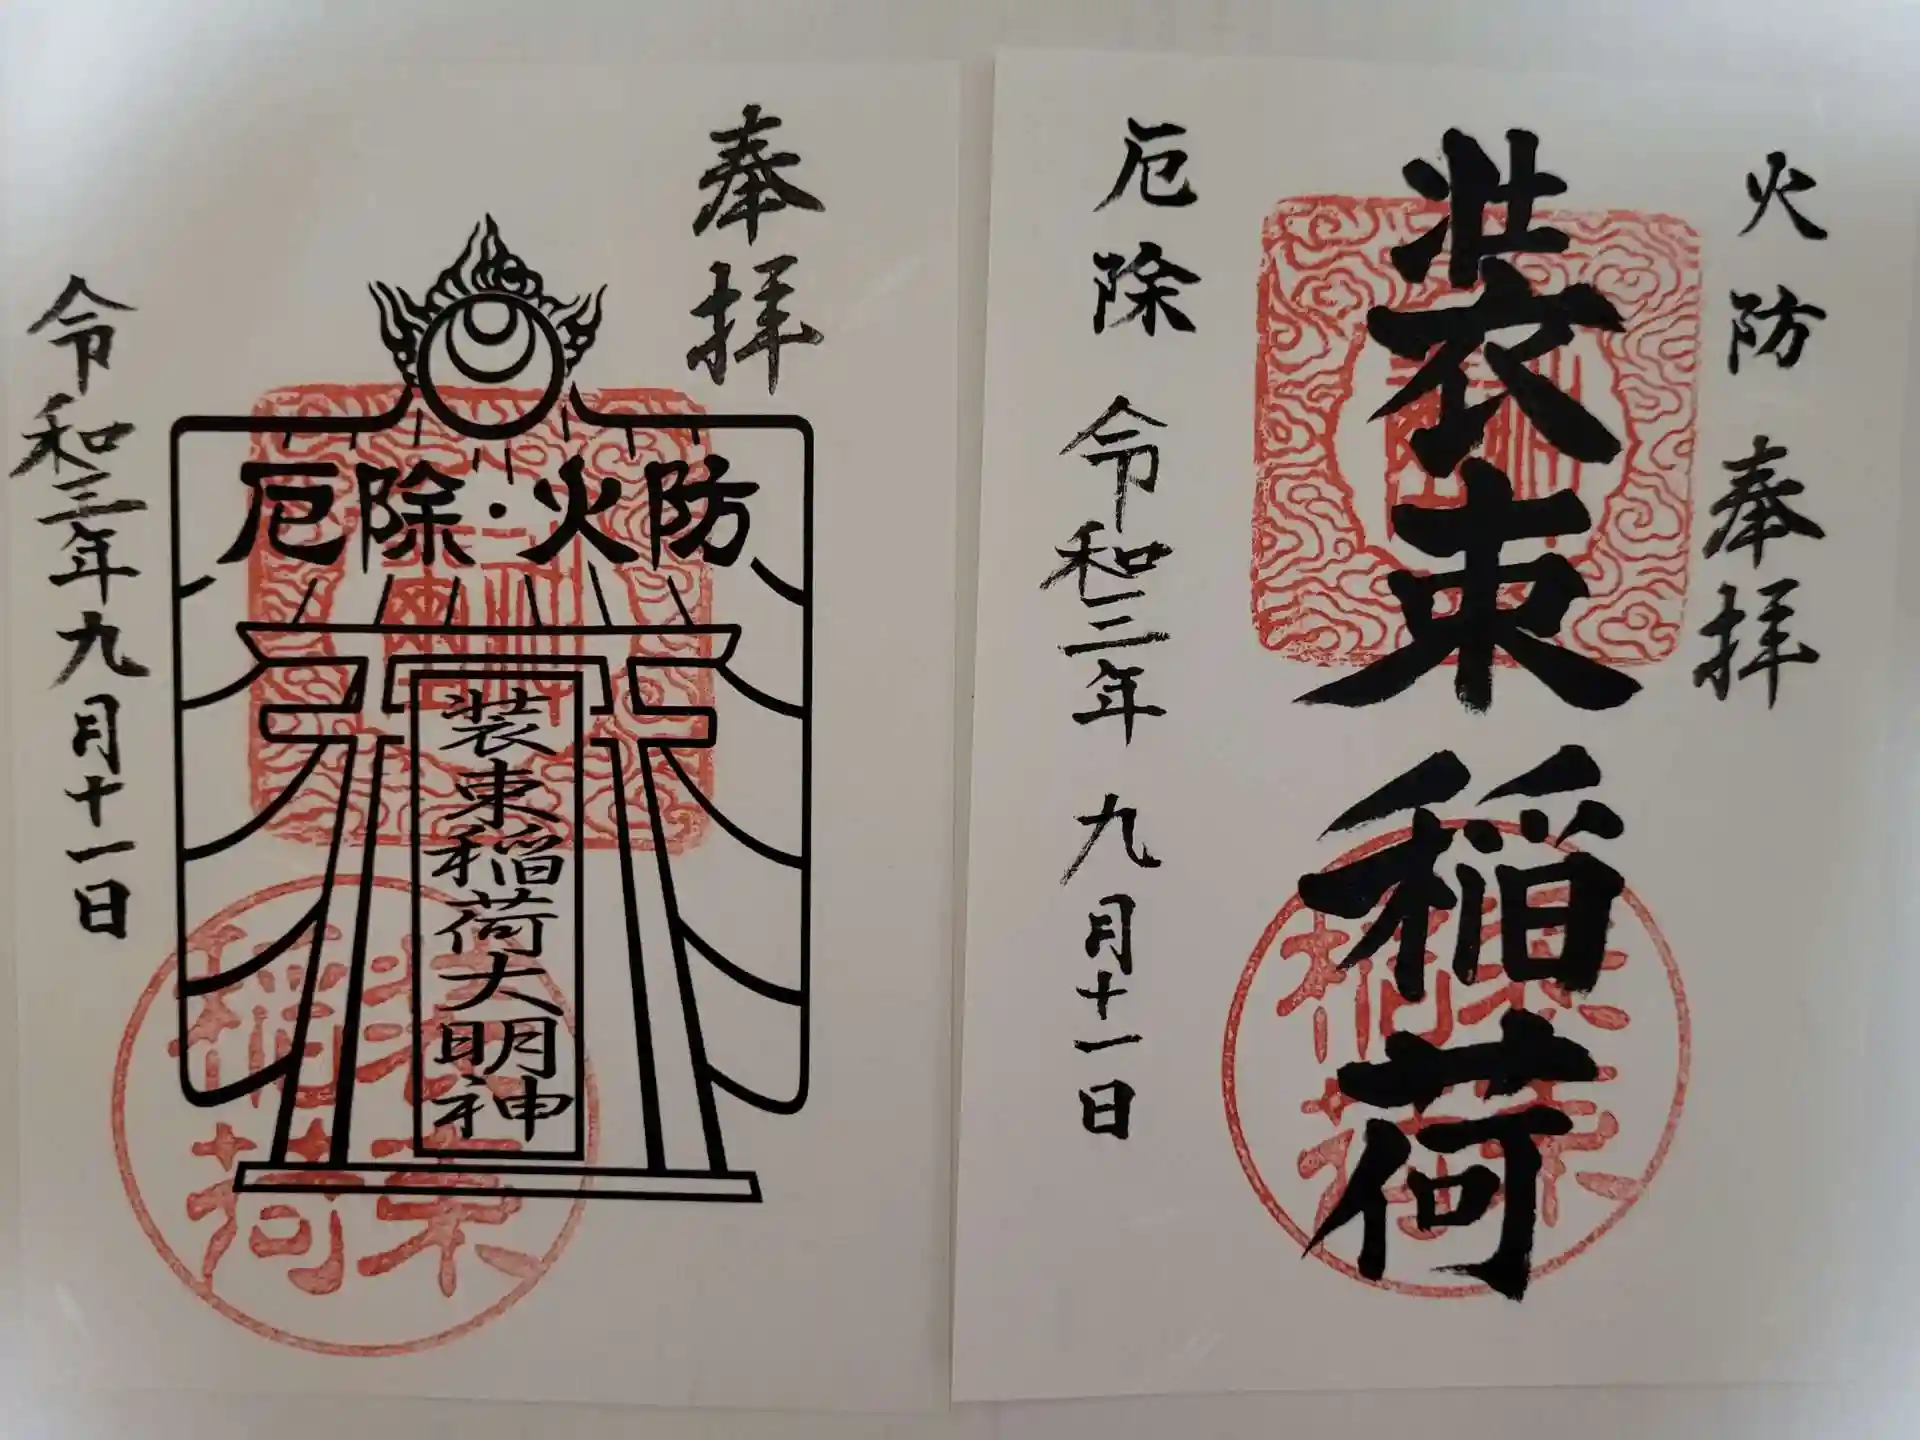 奉拝
厄除・火防
装束稲荷大明神
令和三年九月十一日
装束
稲荷
火防 奉拝
装束稲荷
厄除 令和三年 九月十一日
装束
稲荷